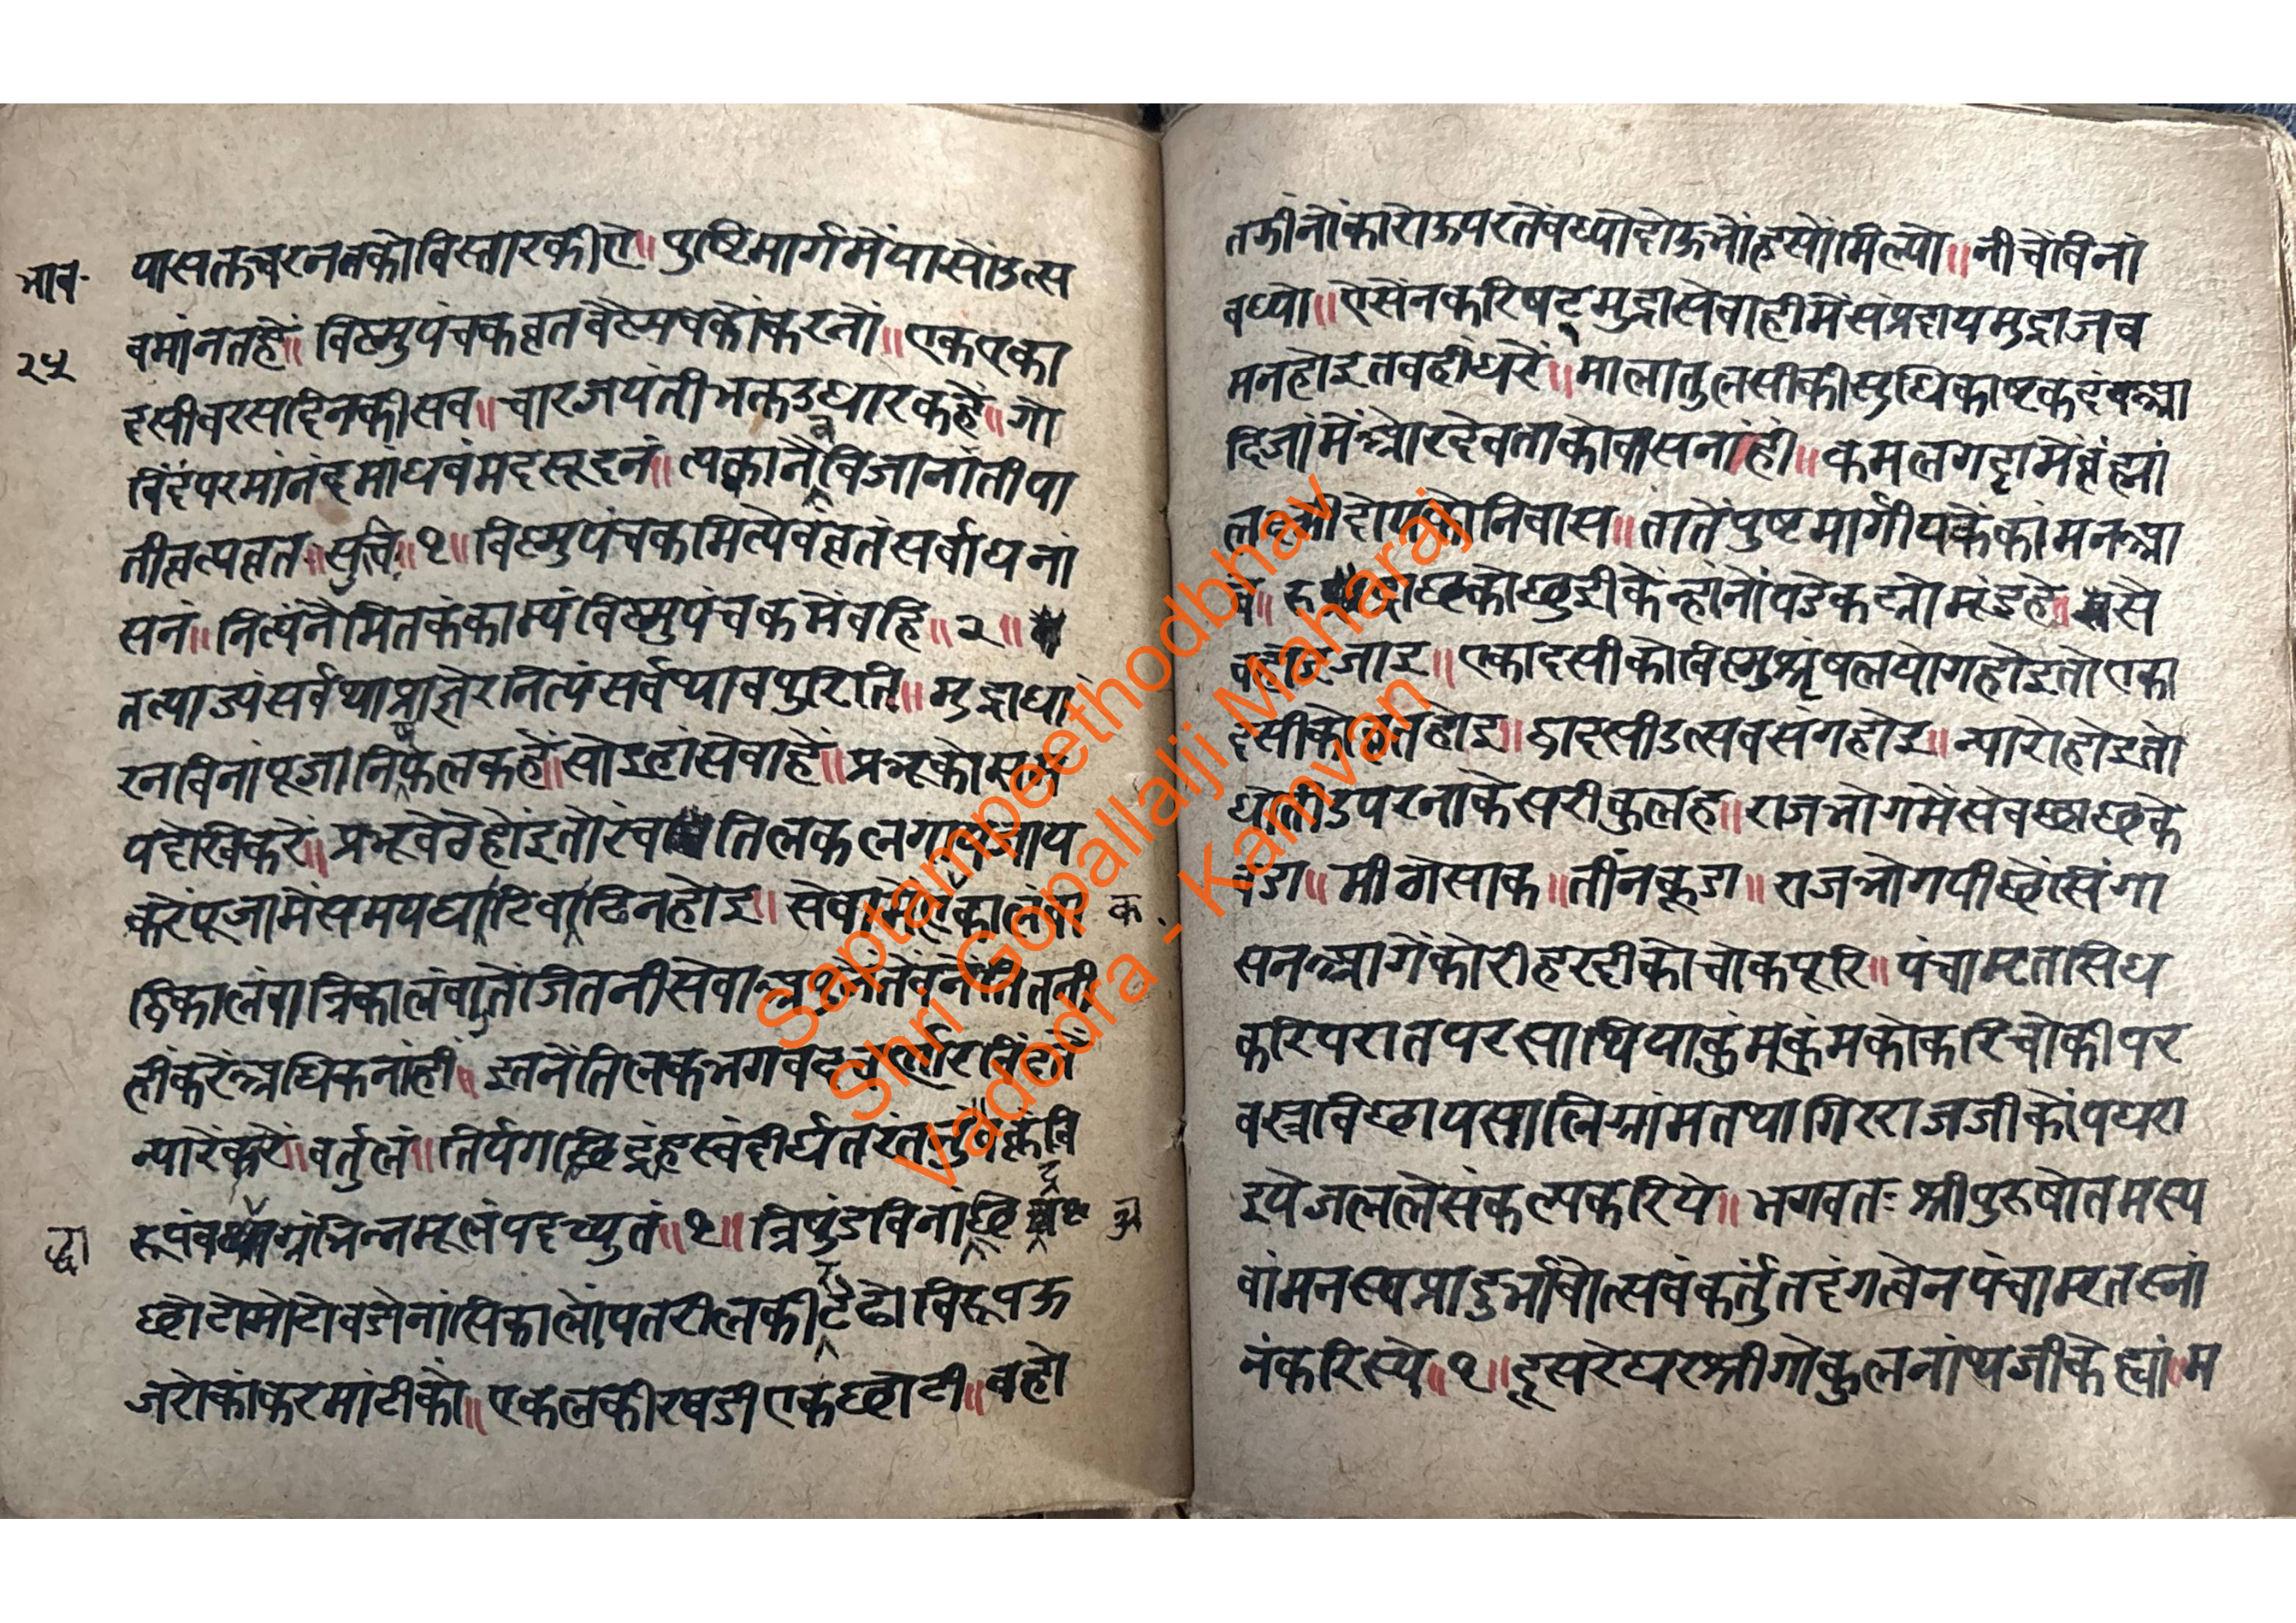 भाव
२५
पासतकचरनतकोविस्तारकीए॥ पुष्टिमार्गमेंयासोंउत्स
वमांनतहैं॥ विष्णुपंचकव्रतवैष्णवकोंकरनों॥ एकएका
दसीवरसादिनकीसव॥ चारजयंतीभक्तउधारकहैं॥ गो
विंदंपरमांनंदमाधवंमदसूदनं॥ त्यकानैवविजानांतीपा
तीव्रत्यव्रत
॥१॥ विष्णुपंचकमित्येवंव्रतंसर्वाघनां
सनं॥ नित्यंनैमितकंकाम्यंविष्णुपंचकमेंवहि॥२॥
तत्याज्यंसर्वथाप्राज्ञेरनित्यंसर्वथावपुरिति॥ मुद्राधा
रनविनांपूजानिष्फलकहैं॥ सोइहांसेवाहैं॥ प्रभूको
पदेखिकरें॥ प्रभूवेठेहोंइतो तिलकलगाय
करेंपूजामेंसमयघाटिवाढिनहोइ॥ सेवामें
क
द्विकालंवात्रिकालंवातेंजितनीसेवा
हींकरेंअधिकनांहीं॥ इतनेंतिलकभगवद
न्यारेंकरें॥ वर्तुलं॥ तिर्यगछिद्रंह्रस्वंदीर्घंत
रूपंव भिन्नमूलंपदच्युतं॥१॥ त्रिपुंडविनां
द्धा
छोटोमोटोवडोनांसिकालोंपतरीलकीरटेढोविरूपऊ
जरोकांकरमांटीको॥ एकलकीरवडीएकछोटी॥ वहो
तजीनोंकारोऊपरतेंवध्योदोऊभोंहसोंमिल्यो॥ नीचेंविनां
वध्यो॥ ऐसेंनकरिषट्मुद्रासेवाहीमेंसंप्रदायमुद्राजव
मनहोइतवहींधरें॥ मालातुलसीकीसुधिकाष्टकदंवआ
दिजांमेंओरदेवताकोवासनांहीं॥ कमलगट्टामेंव्रंह्मां
लक्ष्मीदोयकोनिवास॥ तातेंपुष्टमार्गीयकेंकांमनआ
वें॥ कोछुडीकेंन्हांनोंपडेकह्योमूंडहे॥
जाइ॥ एकादसीकोविष्णुश्रृंषलयोगहोइतोएका
दसीकोव्रतहोइ॥ द्वादसीउत्सवसंगहोइ॥ न्यारोहोइतो
धोतीउपरनाकेसरीकुलह॥ राजभोगमेंसेवछाछके
वडा॥ मीठोसाक॥ तींनकूडा॥ राजभोगपीछेंसिंगा
सनआगेंकोरीहरदीकोचोकपूरि॥ पंचामृतसिध
करिपरातपरसाथियाकुंमकुंमकोकरिचोकीपर
वस्त्रविछायसालिग्रांमतथागिरराजजीकोंपधरा
इयेजललेसंकल्पकरिये॥ भगवतः श्रीपुरुषोतमस्य
वांमनस्यप्रादुर्भावोत्सवंकर्तुंतदंगत्वेनपंचामृतस्नां
नंकरिस्ये॥१॥ दूसरेघरश्रीगोकुलनांथजीकेह्यां॥म
Saptampeethodbhav
Shri Gopallalji Maharaj
Vadodra - Kamvan